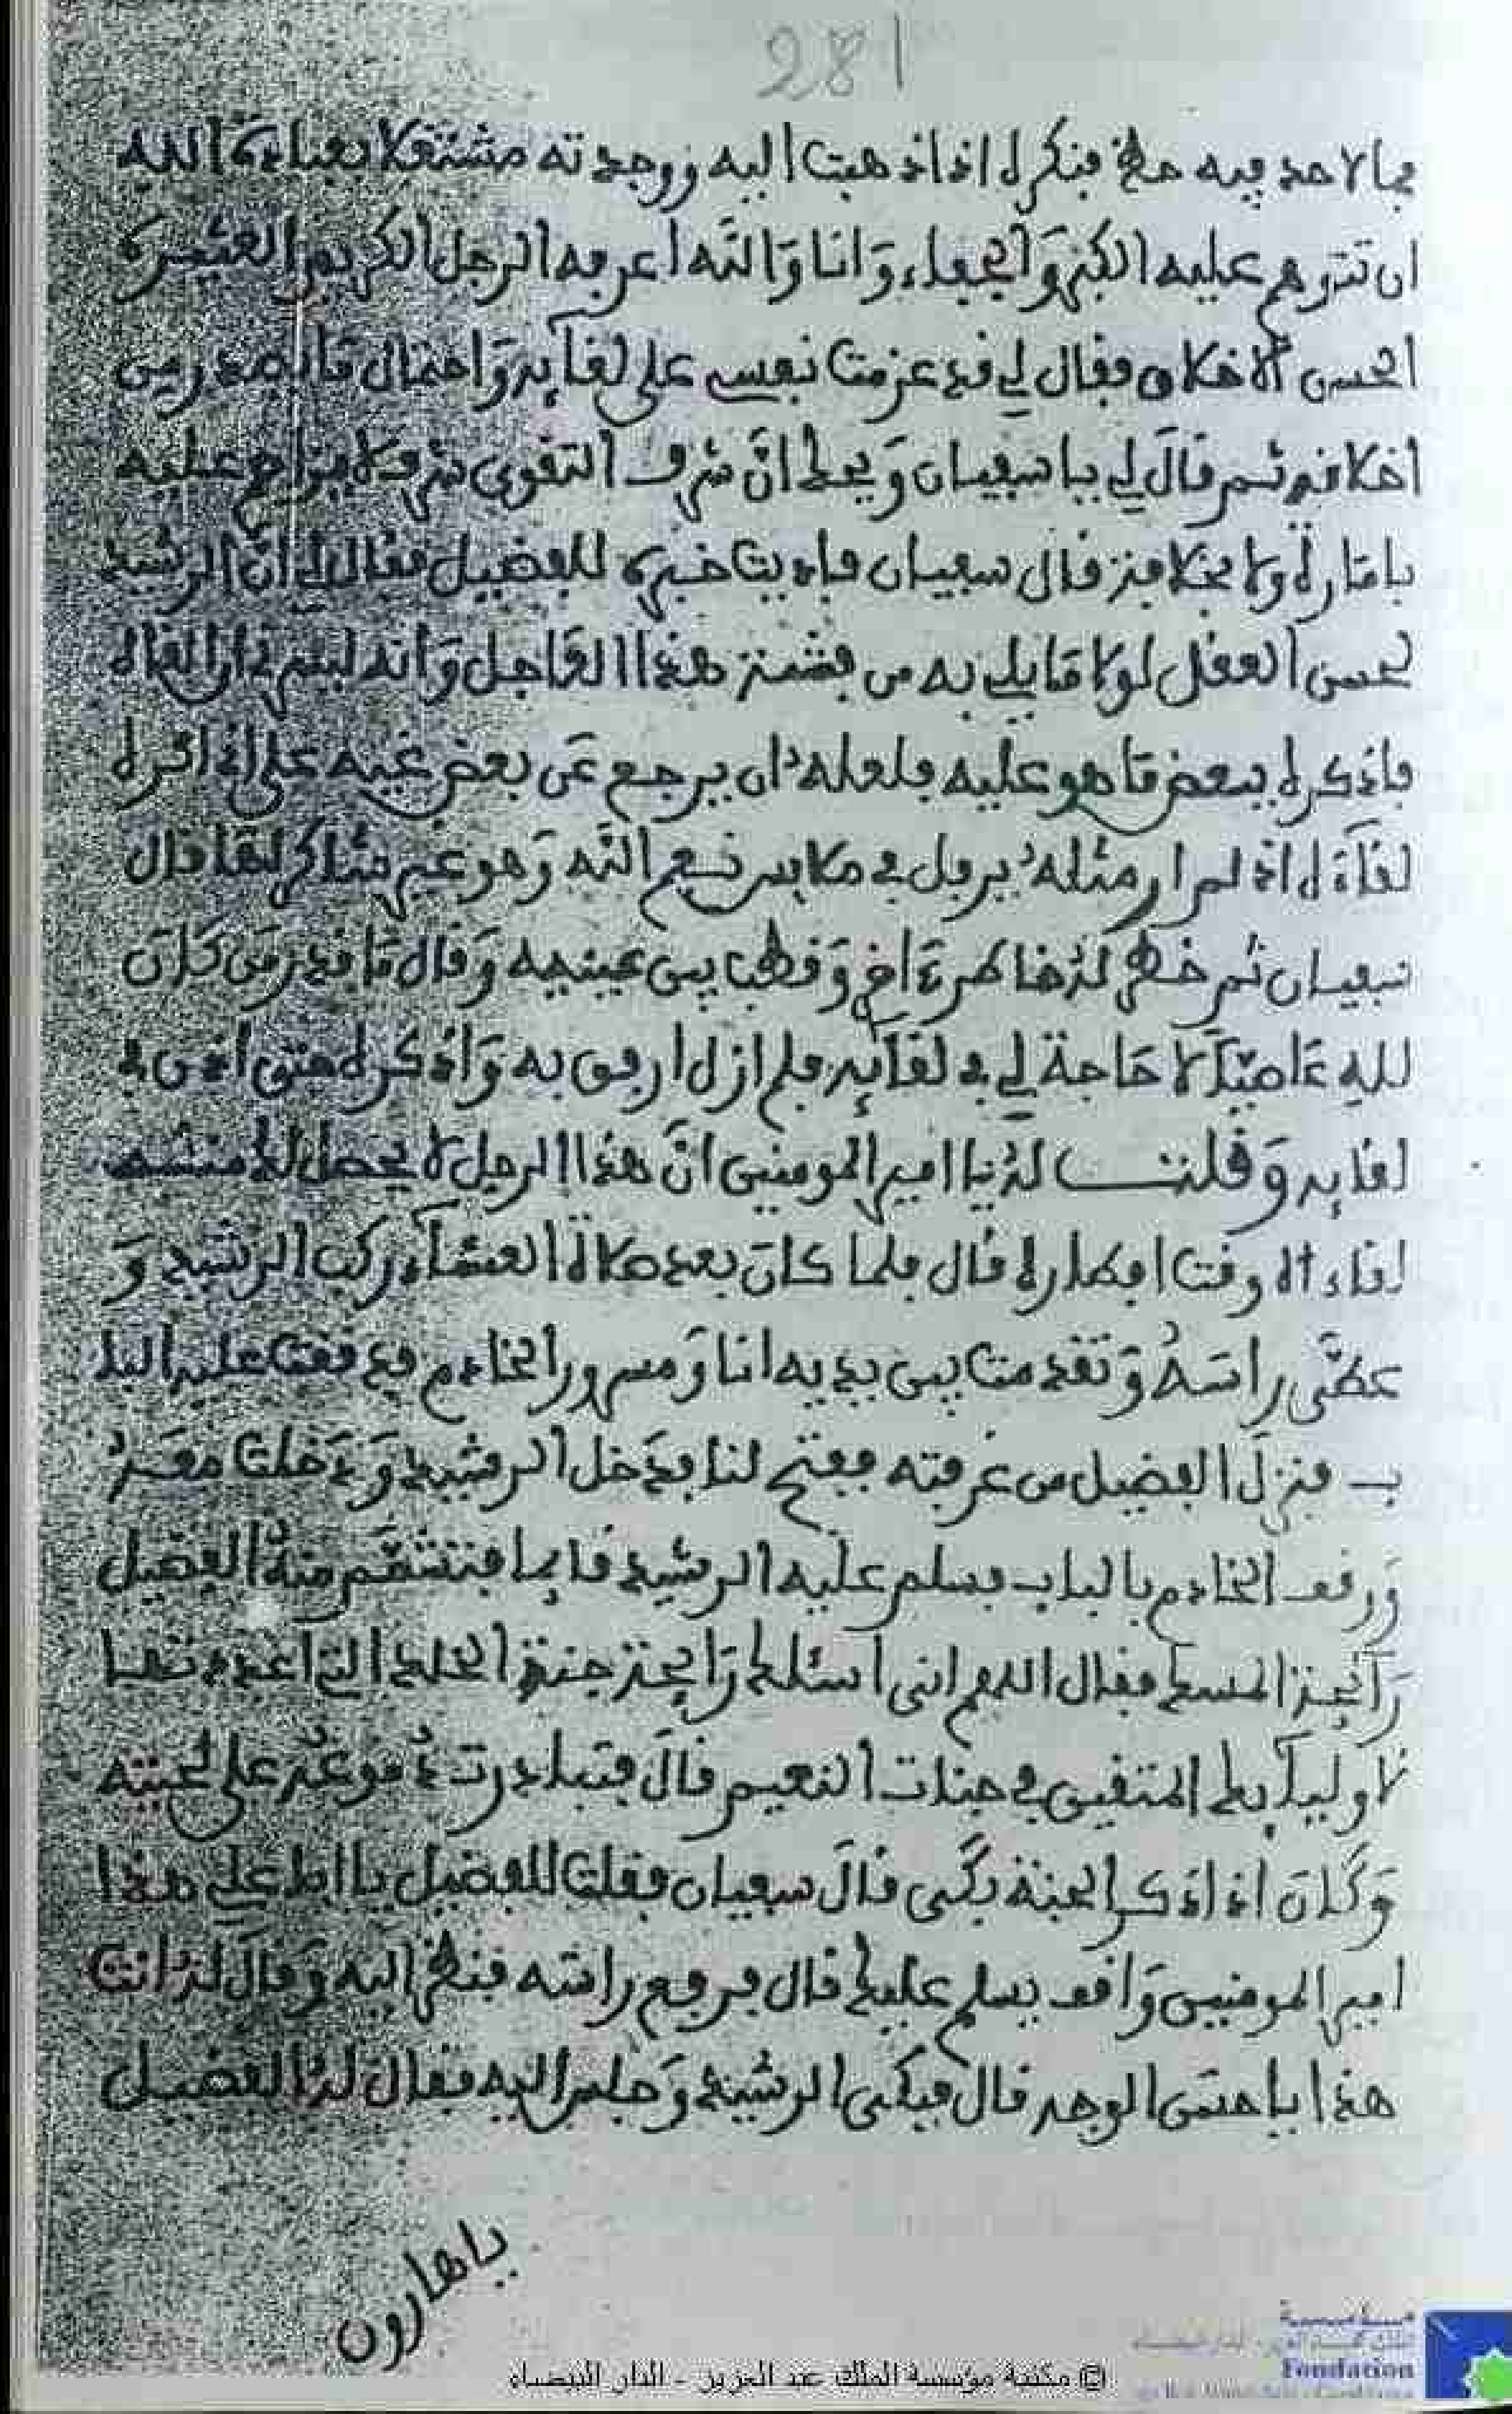 281
فيما لاحد فيه حظ فنكره اذا ذهبت اليه ووجدته مشتغلا بعبادة الله
ان تتوهم عليه الكبر والجفاء وانا والله اعرفه الرجل الكريم العشرة
الحسن الاخلاق فقال لي قد عزمت نفسي على لقايه واحتمال ما يصدر من
اخلاقه ثم قال لي يا سفيان ويحك ان شرف التقوى شرف لا يزاحم عليه
بامارة ولا بخلافة قال سفيان فاديت خبره للفضيل فقال لي ان الرشيد
لحسن العقل لولا ما بلي به من فتنة هذا العاجل وانه ليسرني لقاه
فاذكره ببعض ما هو عليه فلعله ان يرجع عن بعض غيه على اني اكره
لقاءه اذ لم ار مثله يرفل في ملابس نعم الله وهو غير شاكر لها قال
سفيان ثم خطر له خاطر ءاخر وقطب بين عينيه وقال ما قدر من كان
لله عاصيا لا حاجة لي في لقايه فلم ازل ارفق به واذكره حتى اذن في
لقايه وقلت له يا امير المومنين ان هذا الرجل لا يحصل لك منه
لقاء الا وقت افطاره قال فلما كان بعد صلاة العشاء ركب الرشيد و
غطى راسه وتقدمت بين يديه انا ومسرور الخادم فدققت عليه البا
ب فنزل الفضيل من غرفته ففتح لنا فدخل الرشيد ودخلت معه
ووقف الخادم بالباب فسلم عليه الرشيد قايما فتنسم منه الفضيل
رائحة المسك فقال اللهم اني اسئلك رائحة جنة الخلد التي اعددتها
لاوليائك المتقين في جنات النعيم قال فتبادرت دموعه على لحيته
وكان اذا ذكر الجنة بكى قال سفيان فقلت للفضيل يا ابا علي هذا
امير المومنين واقف يسلم عليك قال فرفع راسه فنظر اليه وقال له انت
هذا يا حسن الوجه قال فبكى الرشيد وجلس اليه فقال له الفضيل
يا هارون
© مكتبة مؤسسة الملك عبد العزيز - الدار البيضاء
مؤسسة
Fondation